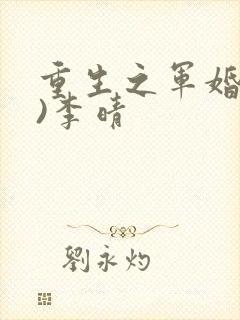 重生之军婚
)李晴
劉永灼